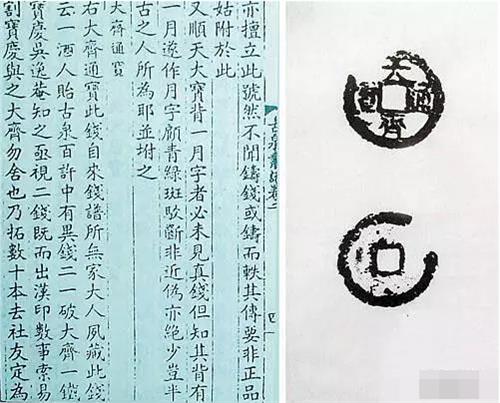 亦擅立此號然不聞鑄錢或鑄而軼其傳要非正品
姑附於此
又順天大寶背一月字者必未見真錢但知其背有
一月遂作月字顧青綠斑駁斷非近偽亦絕少豈半
古之人所為耶並坿之
大齊通寶
右大齊通寶此錢自來錢譜所無家大人夙藏此錢
云一酒人貽古泉百許中有異錢二一破大齊一鎧
寶慶吳逸菴知之亟視二錢既而出漢印數事索易
割寶慶與之大齊勿舍也乃拓數十本去社友定為
大齊通寶